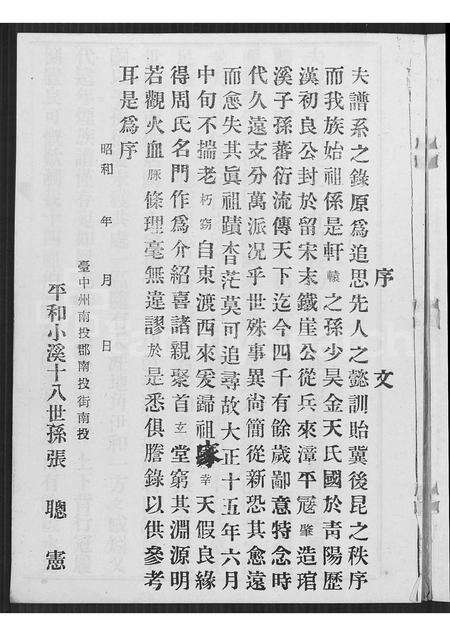 序文
夫譜系之錄原為追思先人之懿訓貽冀後昆之秩序
而我族始祖係是軒轅之孫少昊金天氏國於青陽歷
漢初良公封於留宋末鐵崖公從兵來漳平寇肇造琯
溪子孫蕃衍流傳天下迄今四千有餘歲鄙意特念時
代久遠支分萬派况乎世殊事異尚簡從新恐其愈遠
而愈失其眞祖蹟杳茫莫可追尋故大正十五年六月
中旬不揣老朽竊自東渡西來爰歸祖家幸天假良緣
得周氏名門作為介紹喜諸親聚首玄堂窮其淵源明
若觀火血脉條理毫無違謬於是悉俱謄錄以供參考
耳是為序
昭和 年 月 日
臺中州南投郡南投街南投
平和小溪十八世孫張 聰憲